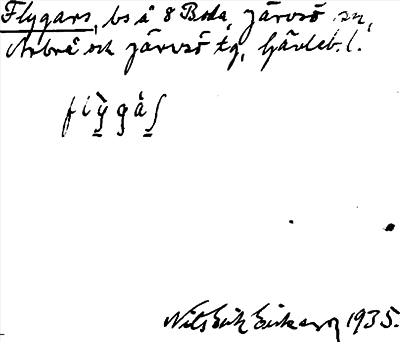 Flygars, bs å 8 Boda, Järvsö sn,
Arbrå och Järvsö tg, Gävleb. l.
flỳgàʃ
Nils Erik Eriksson 1935.